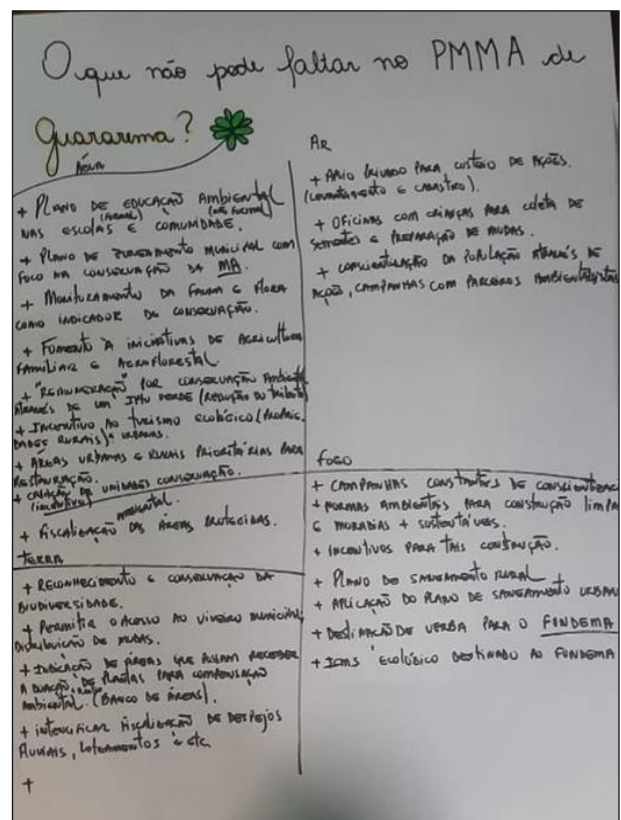 O que não pode faltar no PMMA de
Guararema?
ÁGUA
+ PLANO DE EDUCAÇÃO AMBIENTAL
(FORMAL) (NÃO FORMAL)
NAS ESCOLAS E COMUNIDADE.
+ PLANO DE ZONEAMENTO MUNICIPAL COM
FOCO NA CONSERVAÇÃO DA MA.
+ MONITORAMENTO DA FAUNA E FLORA
COMO INDICADOR DE CONSERVAÇÃO.
+ FOMENTO À INICIATIVAS DE AGRICULTURA
FAMILIAR E AGROFLORESTAL.
+ "REMUNERAÇÃO" POR CONSERVAÇÃO AMBIENTAL
ATRAVÉS DE UM IPTU VERDE (REDUÇÃO DO TRIBUTO)
+ INCENTIVO AO TURISMO ECOLÓGICO (PROPRIE
DADES RURAIS) URBANAS.
+ ÁREAS URBANAS E RURAIS PRIORITÁRIAS PARA
RESTAURAÇÃO.
+ CRIAÇÃO DE UNIDADES CONSERVAÇÃO.
(INCENTIVO)
AMBIENTAL.
+ FISCALIZAÇÃO DAS ÁREAS PROTEGIDAS.
TERRA
+ RECONHECIMENTO E CONSERVAÇÃO DA
BIODIVERSIDADE.
+ PERMITIR O ACESSO AO VIVEIRO MUNICIPAL,
DISTRIBUIÇÃO DE MUDAS.
+ INDICAÇÃO DE ÁREAS QUE POSSAM RECEBER
A DOAÇÃO, DE PLANTAS PARA COMPENSAÇÃO
AMBIENTAL. (BANCO DE ÁREAS).
+ INTENSIFICAR FISCALIZAÇÃO DE DESPEJOS
FLUVIAIS, LOTEAMENTOS E ETC.
+
AR
+ APOIO PRIVADO PARA CUSTEIO DE AÇÕES.
(LEVANTAMENTO E CADASTRO).
+ OFICINAS COM CRIANÇAS PARA COLETA DE
SEMENTES E PREPARAÇÃO DE MUDAS.
+ CONSCIENTIZAÇÃO DA POPULAÇÃO ATRAVÉS DE
AÇÕES, CAMPANHAS COM PARCEIROS AMBIENTALISTAS
FOGO
+ CAMPANHAS CONSTANTES DE CONSCIENTIZAÇÃO
+ NORMAS AMBIENTAIS PARA CONSTRUÇÃO LIMPA
E MORADIAS + SUSTENTÁVEIS.
+ INCENTIVOS PARA TAIS CONSTRUÇÃO.
+ PLANO DE SANEAMENTO RURAL
+ APLICAÇÃO DO PLANO DE SANEAMENTO URBANO
+ DESTINAÇÃO DE VERBA PARA O FUNDEMA
+ ICMS ECOLÓGICO DESTINADO AO FUNDEMA